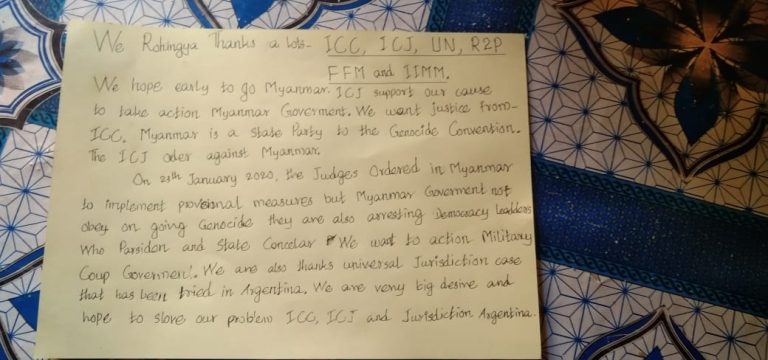 We Rohingya Thanks a lots- ICC, ICJ, UN, R2P
FFM and IIMM.
We hope early to go Myanmar. ICJ support our cause
to take action Myanmar Goverment. We want justice from-
ICC. Myanmar is a State Party to the Genocide Convention.
The ICJ oder against Myanmar.
On 29th January 2020, the Judges Ordered in Myanmar
to implement provisional measures but Myanmar Goverment not
obey on going Genocide they are also arresting Democracy Leadders
Who Parsidon and State Concelar We want to action Military
Coup Goverment. We are also thanks universal Jurisdiction case
that has been tried in Argentina. We are veny big desire and
hope to slove our problem ICC, ICJ and Jurisdiction Argentina.